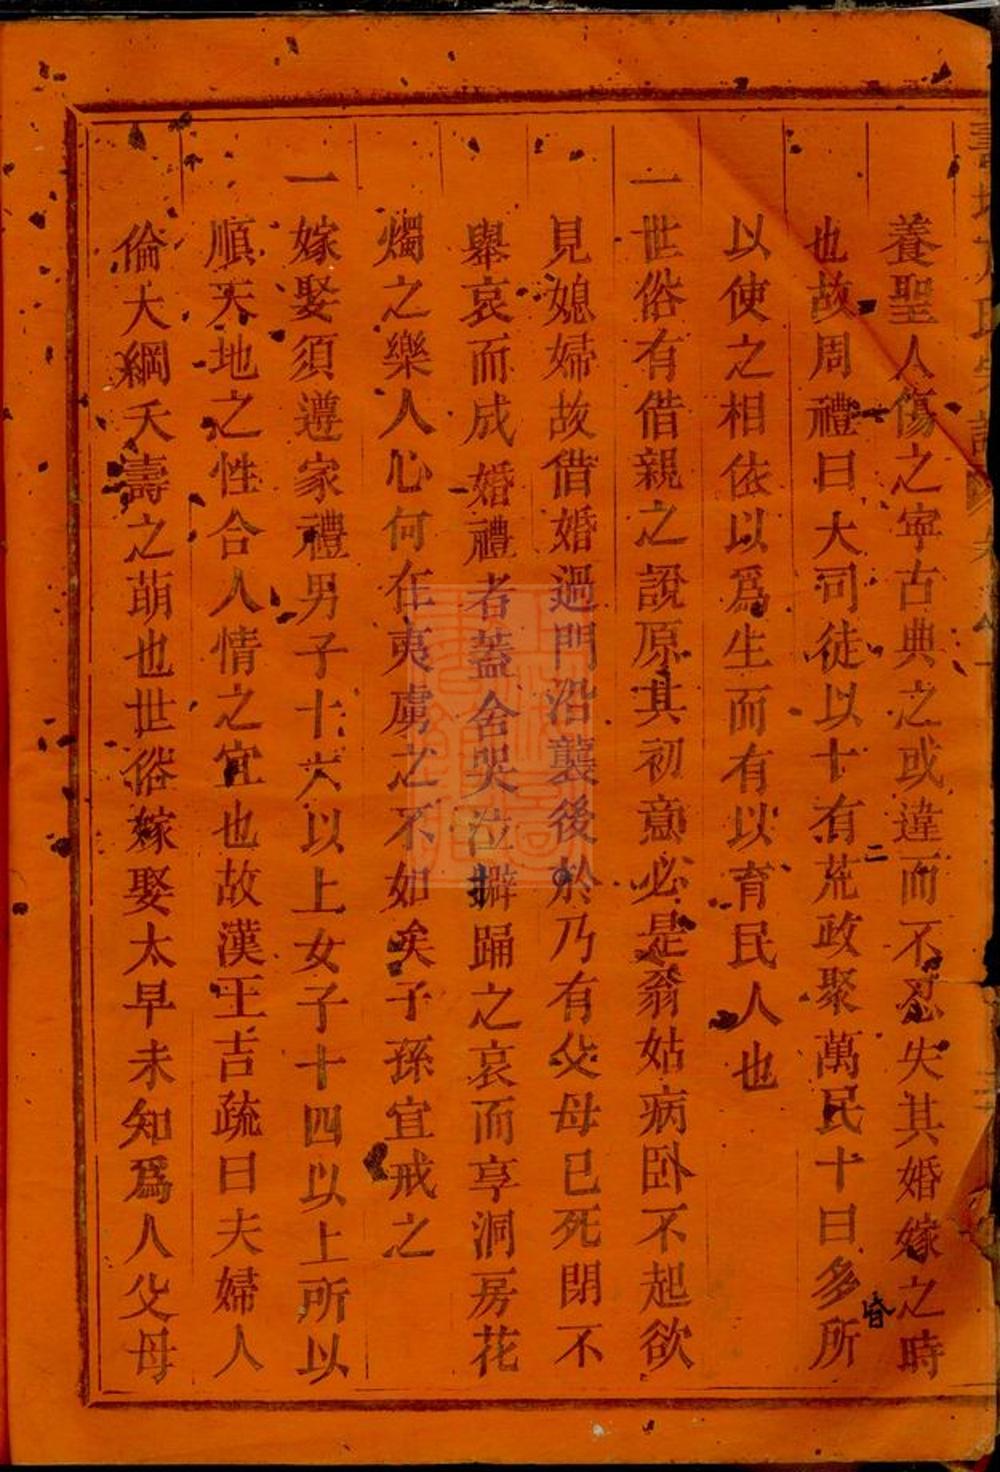 養聖人傷之寧古典之或違而不忍失其婚嫁之時
也故周禮曰大司徒以十有二荒政聚萬民十曰多昏所
以使之相依以爲生而有以育民人也
一世俗有借親之說原其初意必是翁姑病卧不起欲
見媳婦故借婚過門沿襲後於乃有父母已死閉不
舉哀而成婚禮者蓋舍哭泣擗踊之哀而享洞房花
燭之樂人心何在夷虜之不如矣子孫宜戒之
一嫁娶須遵家禮男子十六以上女子十四以上所以
順天地之性合人情之宜也故漢王吉疏曰夫婦人
倫大綱夭壽之萌也世俗嫁娶太早未知爲人父母